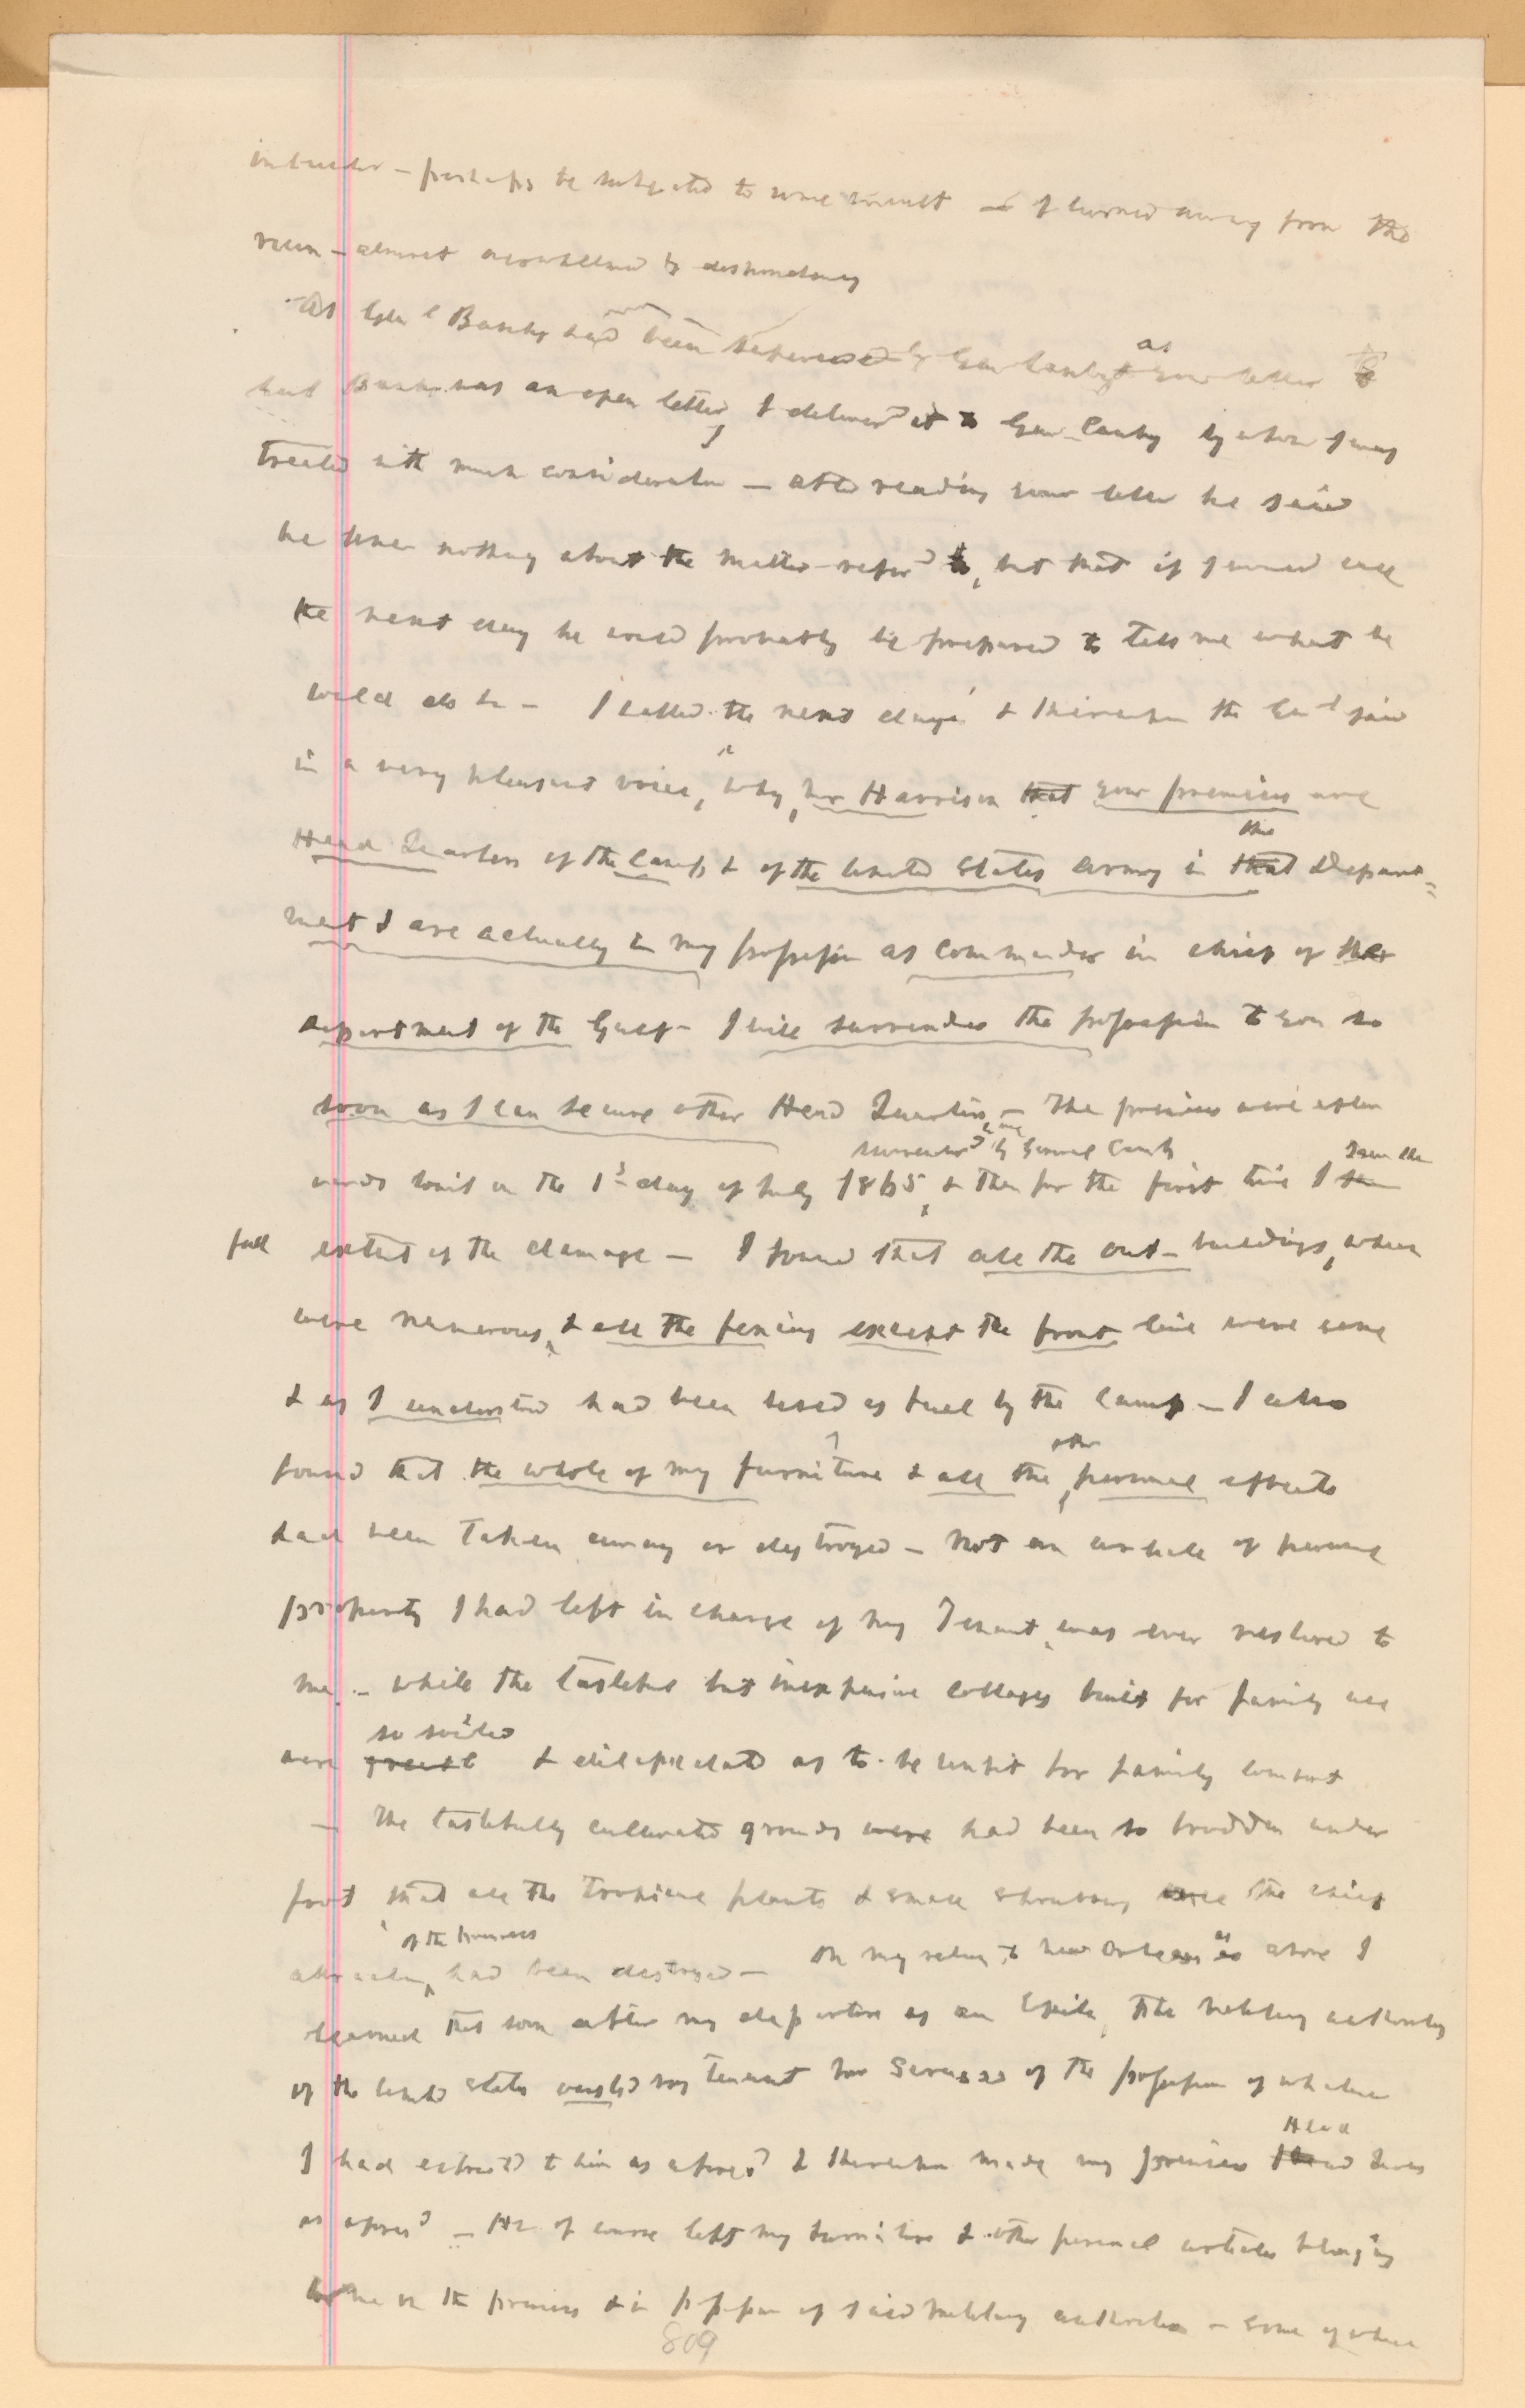 intruder – perhaps be subjected to some insult – I turned away from the
ruin – almost overwhelmed by despondency
As Genl Banks had been superseded by Gen Canby & as your letter to
Banks was an open letter, I deliverd it to Gen Canby by whom I was
treated with much consideration – after reading your letter he said
he knew nothing about the matter referd to, but that if I would call
the next day he would probably be prepared to tell me what he
would do – I called the next day & thereupon the Genl said
in a very pleasant voice, "Why, Mr Harrison that your premises are
Head Quarters of the Camp, & of the United States Army in that the Depart=
ment & are actually in my possession as commander in chief of the
department of the Gulf – I will surrender the possession to you so
soon as I can secure other Head Quarters" – The premises were after
wards on the 1st day of July 1865, surrenderd to me by General Canby & then for the first time I saw the
full extent of the damage – I found that all the out-buildings, which
were numerous, & all the fencing except the front line were gone
& as I understood had been used as fuel by the camp – I also
found that the whole of my furniture & all the other personal effects
had been taken away or destroyed – Not an article of personal
property I had left in charge of my Tenant was ever restored to
me – while the tasteful but inexpensive cottages built for family use
were so soiled & dilapidated as to be unfit for family comfort
– The tastefully cultivated grounds were had been so trodden under
foot that all the tropical plants & small shrubbery the chief
attraction of the premises had been destroyed – On my return to New Orleans as above I
learned that soon after my departure as an Exile, the Military authority
of the United States ousted my tenant of the possession of whatever
I had entrustd to him as aforesd & thereupon made my premises Head Quars
as aforesd – He of course left my furniture & other personal articles belonging
to me on the premises & in possession of said Military authorities – some of which
809